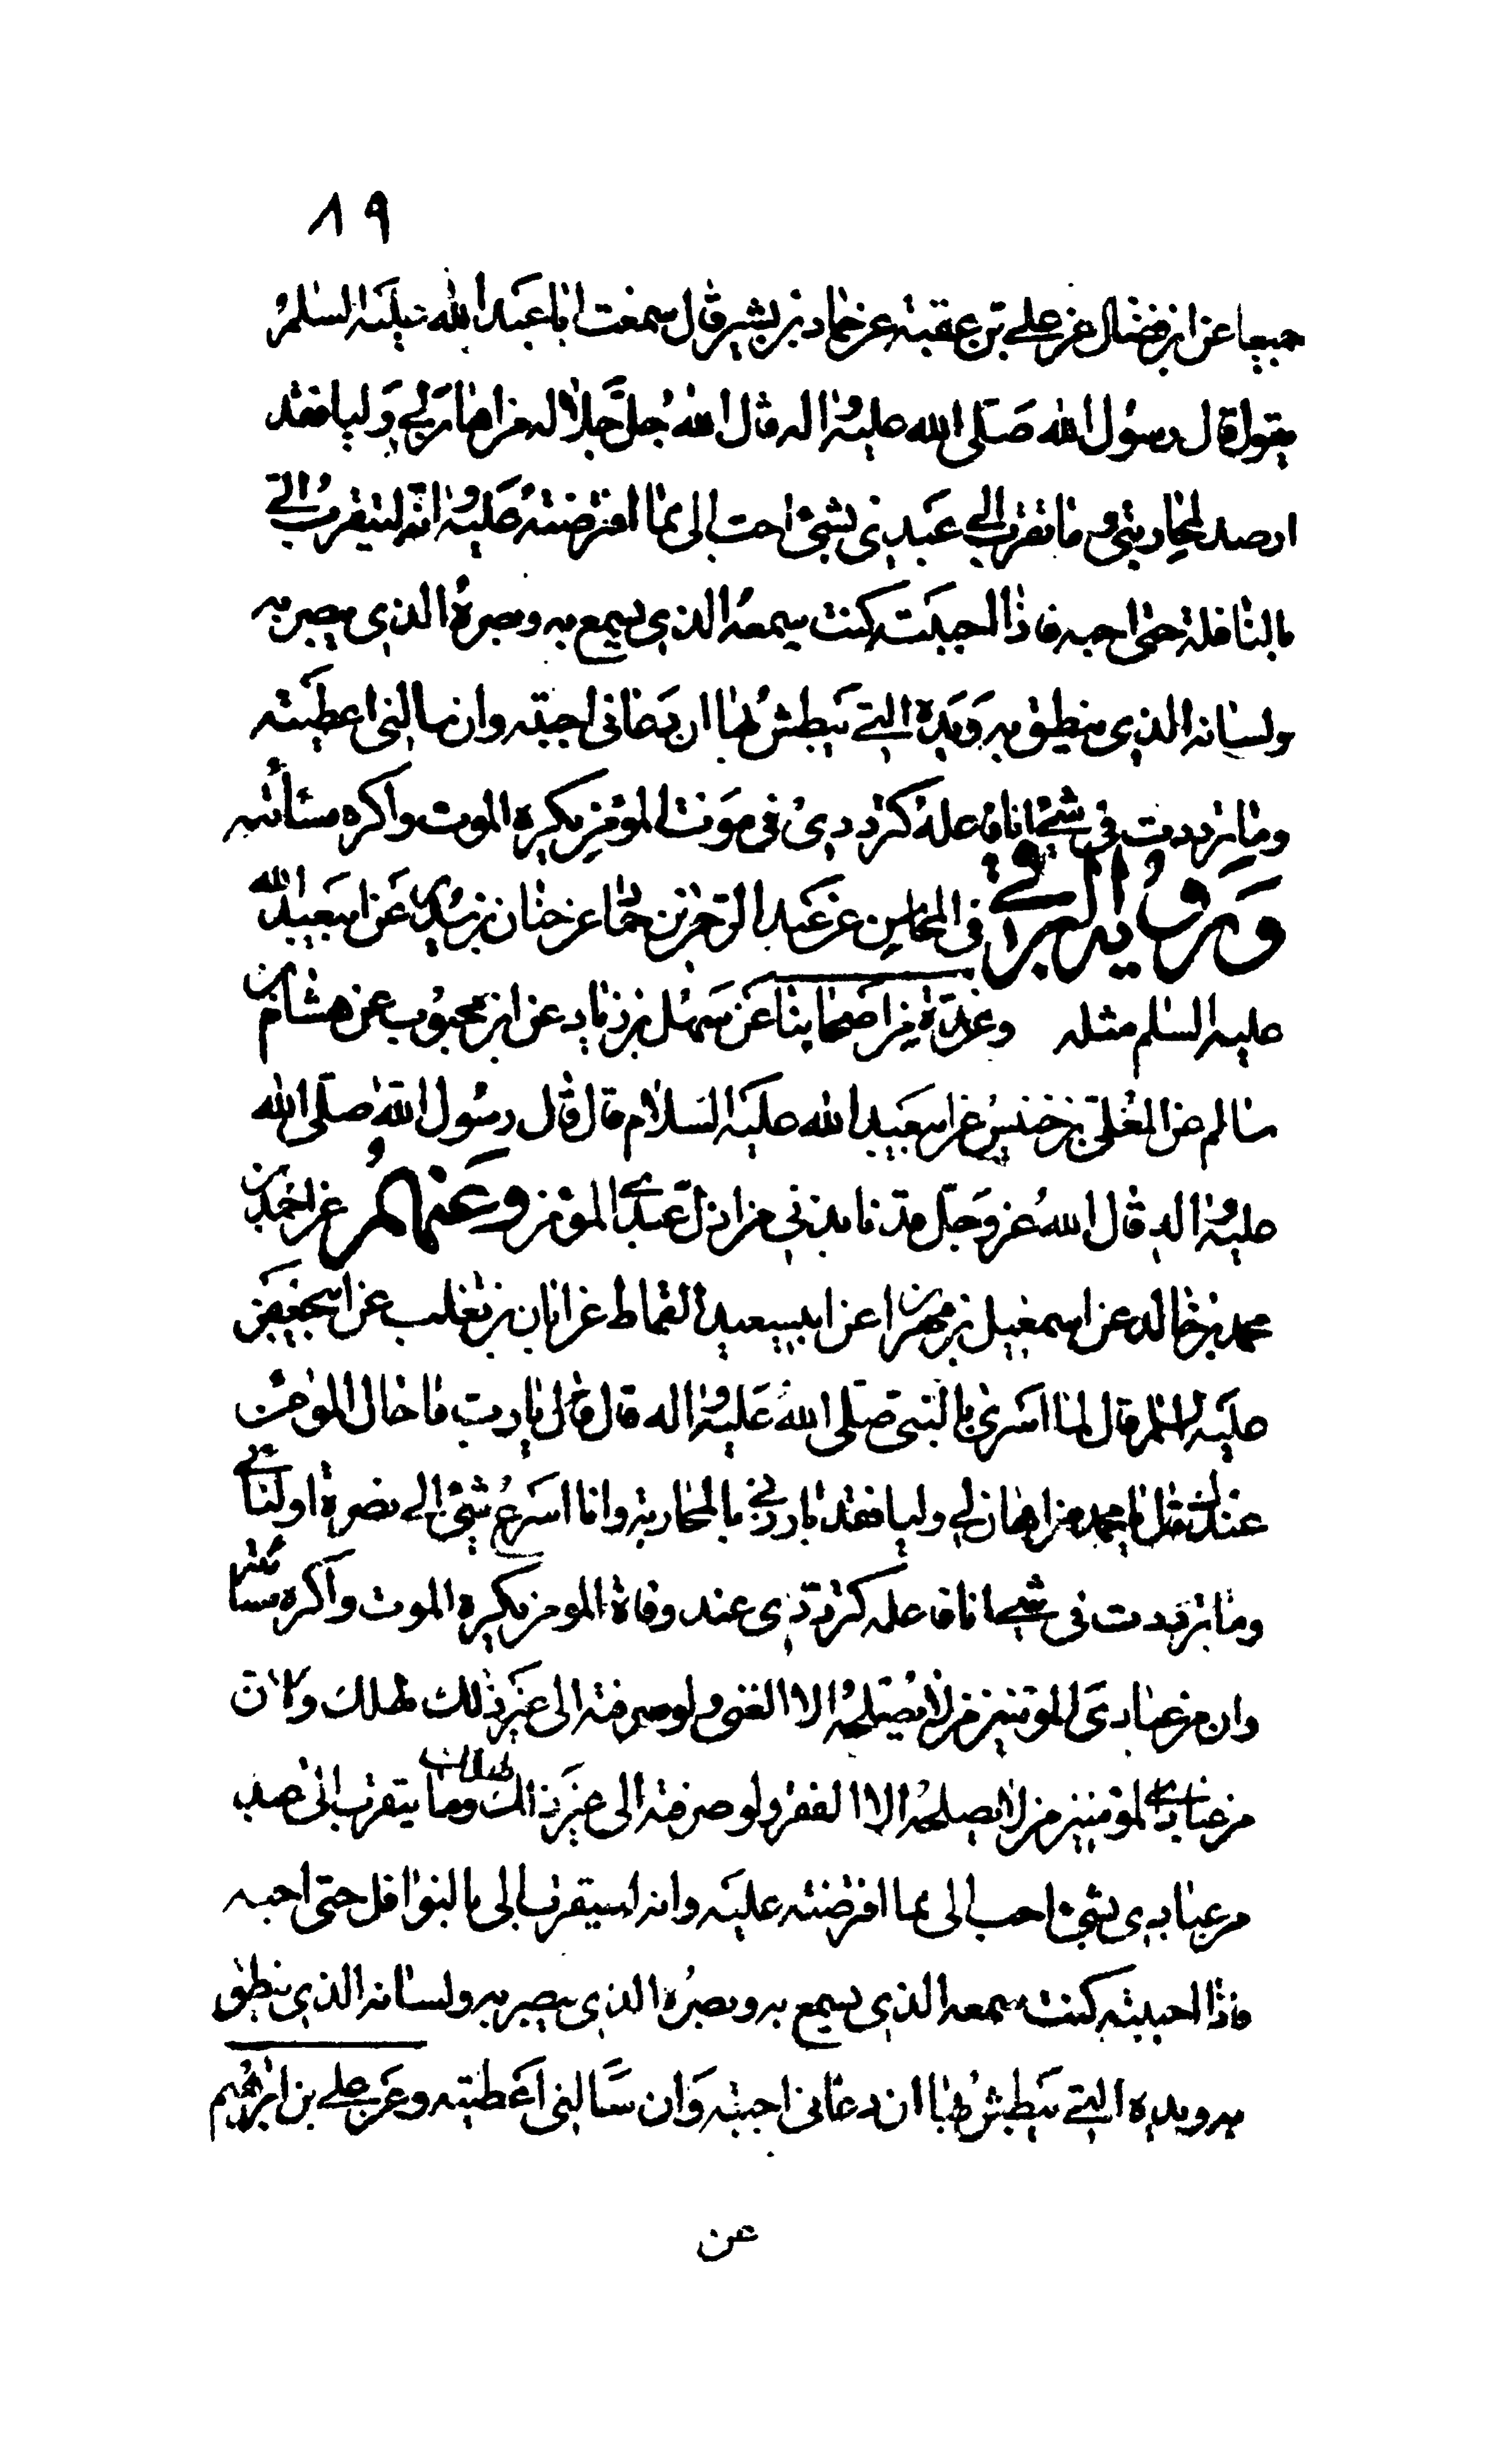 ٨٩
جميعا عن ابن فضال عن علي بن عقبة عن حماد بن بشير قال سمعت ابا عبد الله عليه السلم
يقول قال رسول الله صلى الله عليه واله قال الله جل جلاله من اهان لي وليا فقد
ارصد لمحاربتي وما تقرب الي عبدي بشئ احب الى مما افترضته عليه وانه ليتقرب الي
بالنافلة حتى احبه فاذا احببته كنت سمعه الذي يسمع به وبصره الذي يبصر به
ولسانه الذي ينطق به ويده التي يبطش بها ان دعاني اجبته وان سالني اعطيته
وما ترددت في شئ انا فاعله كترددي في موت المؤمن يكره الموت واكره مسائته
وروى البرقي في المحاسن عن عبد الرحمن بن حماد عن حنان بن سدير عن ابيعبد الله
عليه السلم مثله وعدة من اصحابنا عن سهل بن زياد عن ابن محبوب عن هشام بن
سالم عن المعلى بن خنيس عن ابيعبد الله عليه السلام قال قال رسول الله صلى الله
عليه واله قال الله عز وجل قد نابذني من اذل عبدي المؤمن وعنهم عن احمد بن
محمد بن خالد عن اسمعيل بن مهران عن ابيسعيد القماط عن ابان بن تغلب عن ابيجعفر
عليه السلم قال لما اسرى بالنبي صلى الله عليه واله قال قال يا رب ما حال المؤمن
عندك قال يا محمد من اهان لي وليا فقد بارزني بالمحاربة وانا اسرع شئ الي نصرة اوليائي
وما ترددت في شئ انا فاعله كترددي عند وفاة المومن يكره الموت واكره مسائته
وان من عبادي المؤمنين من لا يصلحه الا الغنى ولو صرفته الى غير ذلك لهلك وان
من عبادي المؤمنين من لا يصلحه الا الفقر ولو صرفته الى غير ذلك لهلك وما يتقرب الى عبد
من عبادي بشئ احب الى مما افترضته عليه وانه ليتقرب الى بالنوافل حتى احبه
فاذا احببته كنت سمعه الذي يسمع به وبصره الذي يبصر به ولسانه الذي ينطق
به ويده التي يبطش بها ان دعاني اجبته وان سالني اعطيته وعن علي بن ابراهيم
عن